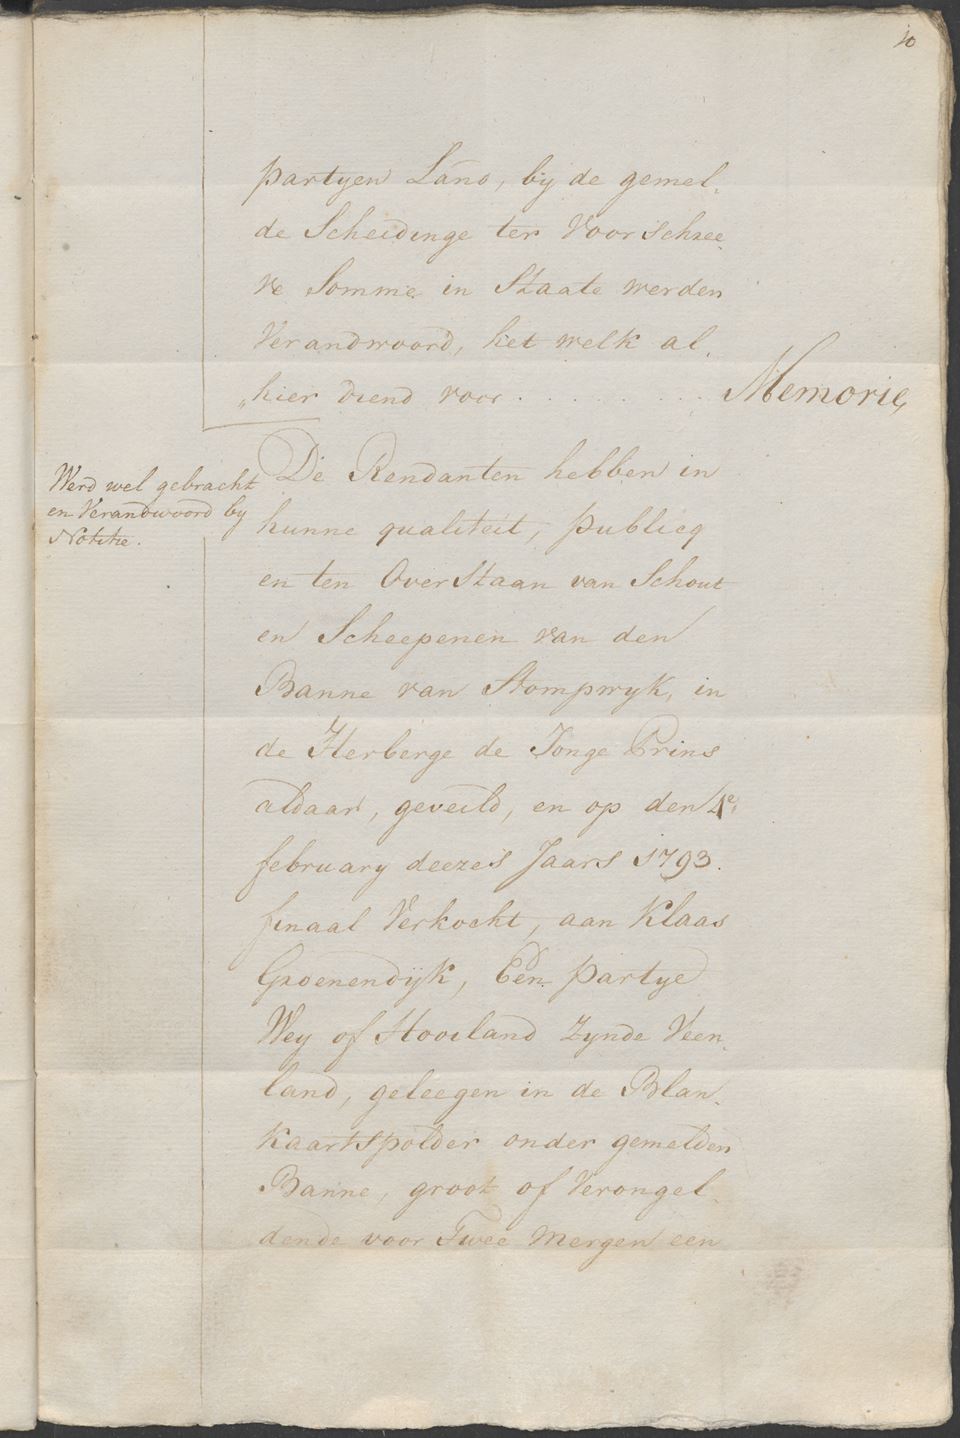 10
partyen Land, by de gemel-
de Scheidinge ter Voorschree
ve Somme in Staate werden
Verandwoord, het welk al-
„hier diend voor . . . . . . . . Memorie
De Rendanten hebben in
hunne qualiteit, publicq
en ten Overstaan van Schout
en Scheepenen van den
Banne van Stompwyk, in
de Herberge de Jonge Prins
aldaar, geveild, en op den 4e
february deezes Jaars 1793.
finaal Verkocht, aan Klaas
Groenendijk, Een partye
Wey of Hooiland Zynde Veen-
land, geleegen in de Blan-
kaartspolder onder gemelden
Banne, groot of Verongel-
dende voor Twee Mergen een
Werd wel gebracht
en Verandwoord by
Notitie.